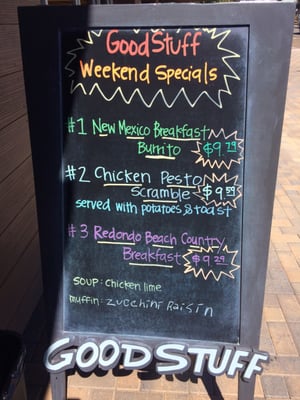 GoodStuff
Weekend Specials
#1 New Mexico Breakfast
Burrito $9.29
#2 Chicken Pesto
Scramble $9.59
served with potatoes & toast
#3 Redondo Beach Country
Breakfast $9.29
SOUP: Chicken lime
muffin: zucchini Raisin
GOOD STUFF